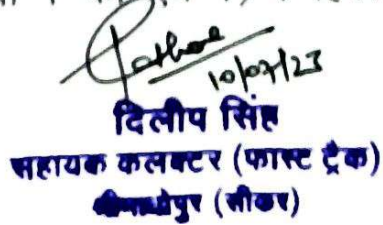 10/07/23
दिलीप सिंह
सहायक कलक्टर (फास्ट ट्रैक)
श्रीमाधोपुर (सीकर)